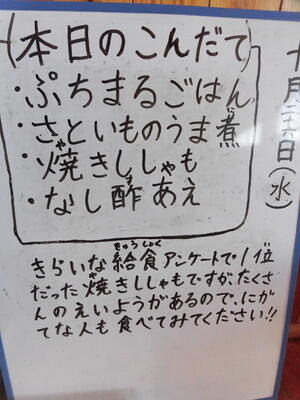 (本日のこんだて)
十月 六日(水)
・ぷちまるごはん
・さといものうま煮
や
・焼きししゃも
・なし酢あえ
きゅうしょく
きらいな給食アンケートで1位
や
だった焼きししゃもですが、たくさ
んのえいようがあるので、にが
てな人も食べてみてください!!